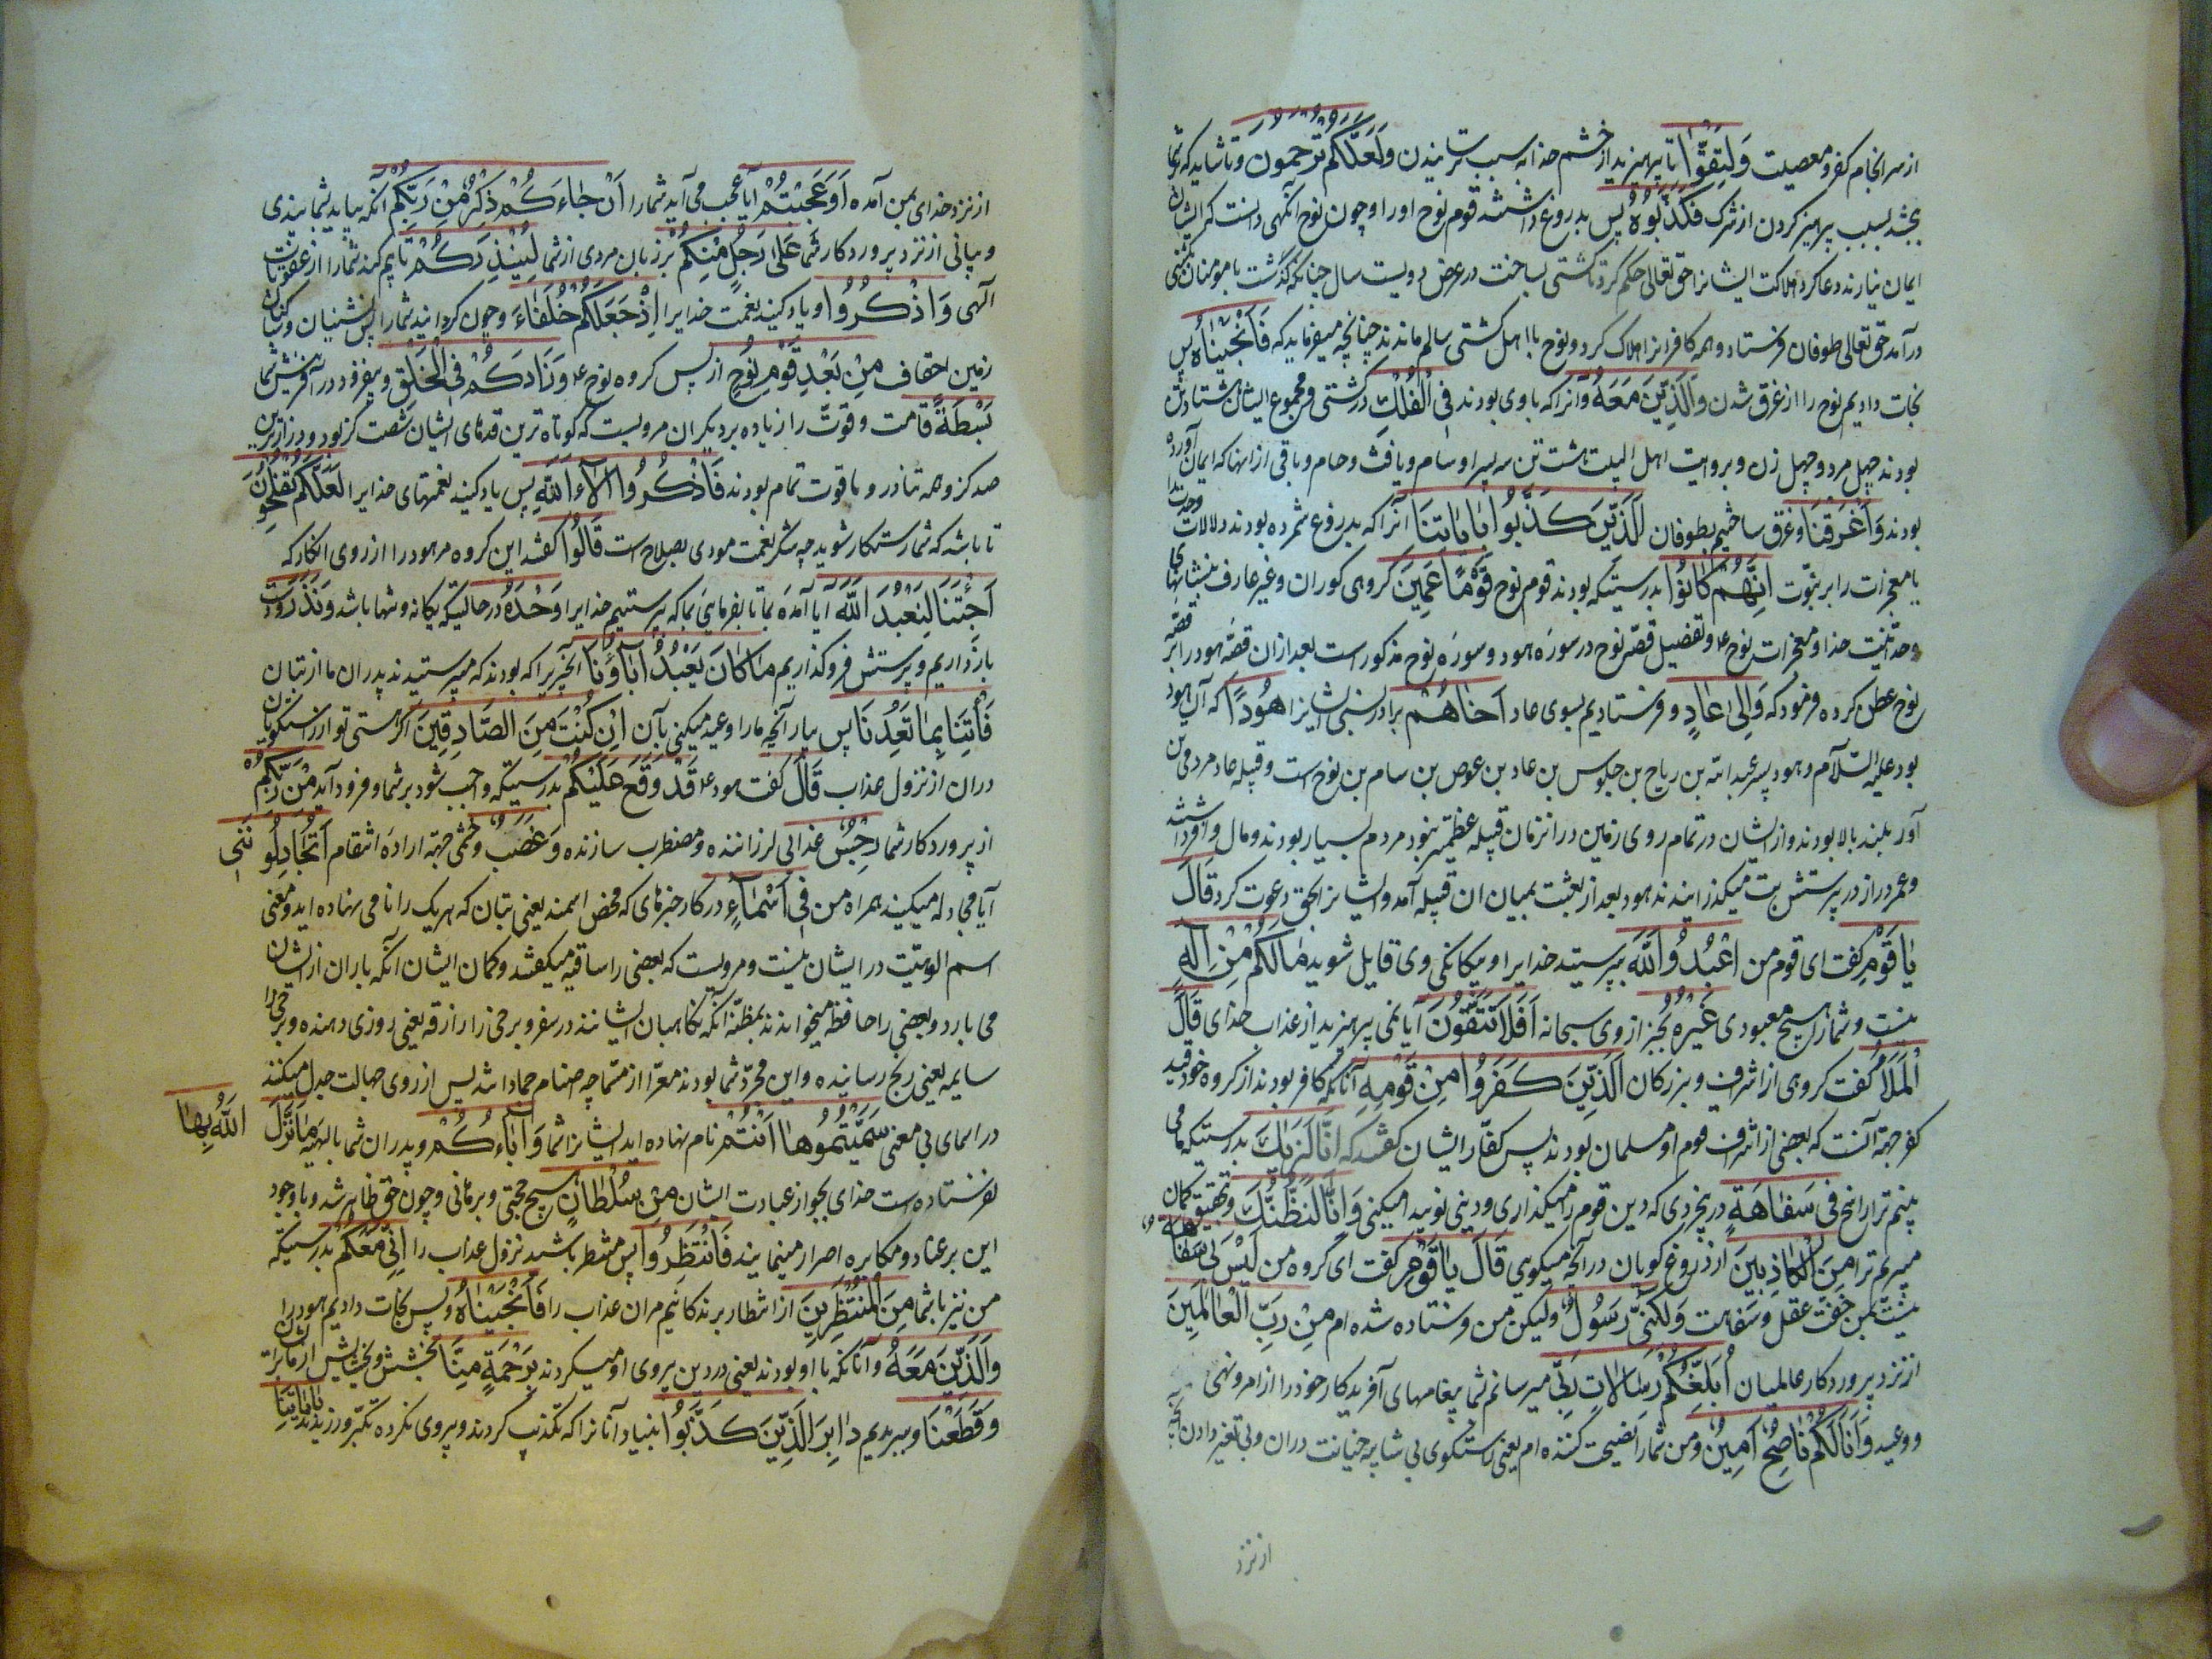 از سرانجام کفر و معصیت وَلِتَتَّقُوا تا بپرهیزید از خشم خدا به سبب ترسانیدن وَلَعَلَّكُمْ تُرْحَمُونَ و تا شاید که شما
بسبب پرهیز کردن از شرک فَكَذَّبُوهُ پس بدروغ داشتند قوم نوح او را و چون نوح دانست که ایشان
ایمان نیارند دعا کرد هلاکت ایشانرا حق تعالی حکم کرد تا کشتی بساخت در عرض دویست سال چنانکه گذشت با مومنان بکشتی
درآمد حق تعالی طوفان فرستاد و همه کافرانرا هلاک کرد و نوح با اهل کشتی سالم ماندند چنانچه میفرماید که فَأَنْجَيْنَاهُ پس
نجات دادیم نوح را از غرق شدن وَالَّذِينَ مَعَهُ و آنرا که با وی بودند فِي الْفُلْكِ در کشتی و مجموع ایشان هشتاد تن
بودند چهل مرد و چهل زن و بروایت اهل البیت هشت تن سه پسر او سام و یافث و حام و باقی از آنها که ایمان آورده
بودند وَأَغْرَقْنَا و غرق ساختیم بطوفان الَّذِينَ كَذَّبُوا بِآيَاتِنَا آنرا که بدروغ شمرده بودند دلالات وحدت
یا معجزات را بر نبوّت إِنَّهُمْ كَانُوا بدرستیکه بودند قوم نوح قَوْمًا عَمِينَ گروهی کوران و غیر عارف
وحدانیت خدا و معجزات نوح ع و تفضیل قصّه نوح در سورهٔ هود و سورهٔ نوح مذکور است بعد از آن قصّه هود را بر قصّه
نوح عطف کرده فرمود که وَإِلَى عَادٍ و فرستادیم بسوی عاد أَخَاهُمْ برادر نسبی ایشانرا هُودًا که آن هود
بود علیه السّلام و هود پسر عبدالله بن رباح بن جلوس بن عاد بن عوص بن سام بن نوح است و قبیله عاد مردمی تن
آور بلند بالا بودند و از ایشان در تمام روی زمین در آنزمان قبیله عظیمتر نبود مردم بسیار بودند و مال وافر داشتند
و عمر دراز در پرستش بت میگذرانیدند هود بعد از بعثت بمیان آن قبیله آمد و ایشانرا بحق دعوت کرد قَالَ
يَا قَوْمِ گفت ای قوم من اعْبُدُوا اللَّهَ بپرستید خدایرا و بیگانگی وی قایل شوید مَا لَكُمْ مِنْ إِلَهٍ
نیست شما را هیچ معبودی غَيْرُهُ بجز از وی سبحانه أَفَلَا تَتَّقُونَ آیا نمی پرهیزید از عذاب خدای قَالَ
الْمَلَأُ گفت گروهی از اشراف و بزرگان الَّذِينَ كَفَرُوا مِنْ قَوْمِهِ آنانکه کافر بودند از گروه خود قید
کفر جهة آنست که بعضی از اشراف قوم او مسلمان بودند پس کفّار ایشان گفتند که إِنَّا لَنَرَاكَ بدرستیکه ما می
بینیم ترا راسخ فِي سَفَاهَةٍ در بیخردی که دین قوم را میگذاری و دینی نو پیدا میکنی وَإِنَّا لَنَظُنُّكَ و بتحقیق گمان
میبریم ترا مِنَ الْكَاذِبِينَ از دروغ گویان در آنچه میگویی قَالَ يَا قَوْمِ گفت ای گروه من لَيْسَ بِي سَفَاهَةٌ
نیست بمن خفّت عقل و سفاهت وَلَكِنِّي رَسُولٌ ولیکن من فرستاده شده ام مِنْ رَبِّ الْعَالَمِينَ
از نزد پروردگار عالمیان أُبَلِّغُكُمْ رِسَالَاتِ رَبِّي میرسانم شما پیغامهای آفریدکار خود را از امر و نهی
و وعید وَأَنَا لَكُمْ نَاصِحٌ أَمِينٌ و من شما را نصیحت کننده ام یعنی راستگوی بی شایبه خیانت در آن و بی تغییر دادن
از نزد
از نزد خدای بمن آمده أَوَعَجِبْتُمْ آیا عجب می آید شما را أَنْ جَاءَكُمْ ذِكْرٌ مِنْ رَبِّكُمْ آنکه بیاید بشما پندی
و بیانی از نزد پروردکار شما عَلَى رَجُلٍ مِنْكُمْ بر زبان مردی از شما لِيُنْذِرَكُمْ تا بیم کند شما را از عقوبات
الهی وَاذْكُرُوا و یاد کنید نعمت خدایرا إِذْ جَعَلَكُمْ خُلَفَاءَ و چون گردانید شما را پس نشینیان و ساکنان
زمین احقاف مِنْ بَعْدِ قَوْمِ نُوحٍ از پس گروه نوح ع وَزَادَكُمْ فِي الْخَلْقِ و بیفزود در آفرینش شما
بَسْطَةً قامت و قوّت را زیاده بر دیگران مرویست که کوتاه ترین قدهای ایشان شصت گز بود و درازترین
صد گز و همه تناور و با قوت تمام بودند فَاذْكُرُوا آلَاءَ اللَّهِ پس یاد کنید نعمتهای خدایرا لَعَلَّكُمْ تُفْلِحُونَ
تا باشد که شما رستکار شوید چه شکر نعمت مودی بصلاح است قَالُوا گفتند این گروه مر هود را از روی انکار که
أَجِئْتَنَا لِنَعْبُدَ اللَّهَ آیا آمدهٔ بما تا بفرمایی بما که پرستیم خدایرا وَحْدَهُ در حالیتکه یگانه و تنها باشد وَنَذَرَ و دست
بازداریم و پرستش فرو گذاریم مَا كَانَ يَعْبُدُ آبَاؤُنَا آنچیزیرا که بودند که میپرستیدند پدران ما از بتان
فَأْتِنَا بِمَا تَعِدُنَا پس بیار آنچه ما را وعید میکنی بآن إِنْ كُنْتَ مِنَ الصَّادِقِينَ اگر هستی تو از راستگویان
در آن از نزول عذاب قَالَ گفت هود ع قَدْ وَقَعَ عَلَيْكُمْ بدرستیکه واجب شود بر شما و فرود آید مِنْ رَبِّكُمْ
از پروردکار شما رِجْسٌ عذابی لرزاننده و مضطرب سازنده وَغَضَبٌ و خشمی جهة ارادهٔ انتقام أَتُجَادِلُونَنِي
آیا مجادله میکنید همراه من فِي أَسْمَاءٍ در کار چیزهای که محض اسمند یعنی بتان که هر یک را نامی نهاده اید و معنی
اسم الوهیّت در ایشان نیست و مرویست که بعضی را ساقیه میگفتند و گمان ایشان آنکه باران از ایشان
می بارد و بعضی را حافظه میخواندند بمظنّه آنکه نگاهبان ایشانند در سفر و برخی را رازقه یعنی روزی دهنده و برخی را
سایمه یعنی رنج رساینده و این مجرّد شما بودند معرّا از مسمّا چه اصنام جمادا شد پس از روی جهالت جدل میکنند
در اسمای بی معنی سَمَّيْتُمُوهَا أَنْتُمْ نام نهاده اید ایشانرا شما وَآبَاؤُكُمْ و پدران شما بالهیّه مَا نَزَّلَ اللَّهُ بِهَا
نفرستاده است خدای بجواز عبادت ایشان مِنْ سُلْطَانٍ هیچ حجّتی و برهانی و چون حق ظاهر شد و با وجود
این بر عناد و مکابره اصرار مینمایند فَانْتَظِرُوا پس منتظر باشید نزول عذاب را إِنِّي مَعَكُمْ بدرستیکه
من نیز با شما مِنَ الْمُنْتَظِرِينَ از انتظار برندکانیم مر آن عذاب را فَأَنْجَيْنَاهُ پس نجات دادیم هود را
وَالَّذِينَ مَعَهُ و آنانکه با او بودند یعنی در دین پیروی او میکردند بِرَحْمَةٍ مِنَّا بخشش و بخشایش از ما بر ایشان
وَقَطَعْنَا و ببریدیم دَابِرَ الَّذِينَ كَذَّبُوا بِآيَاتِنَا بنیاد آنانرا که تکذیب کردند و پیروی نکرده تکبّر ورزیدند